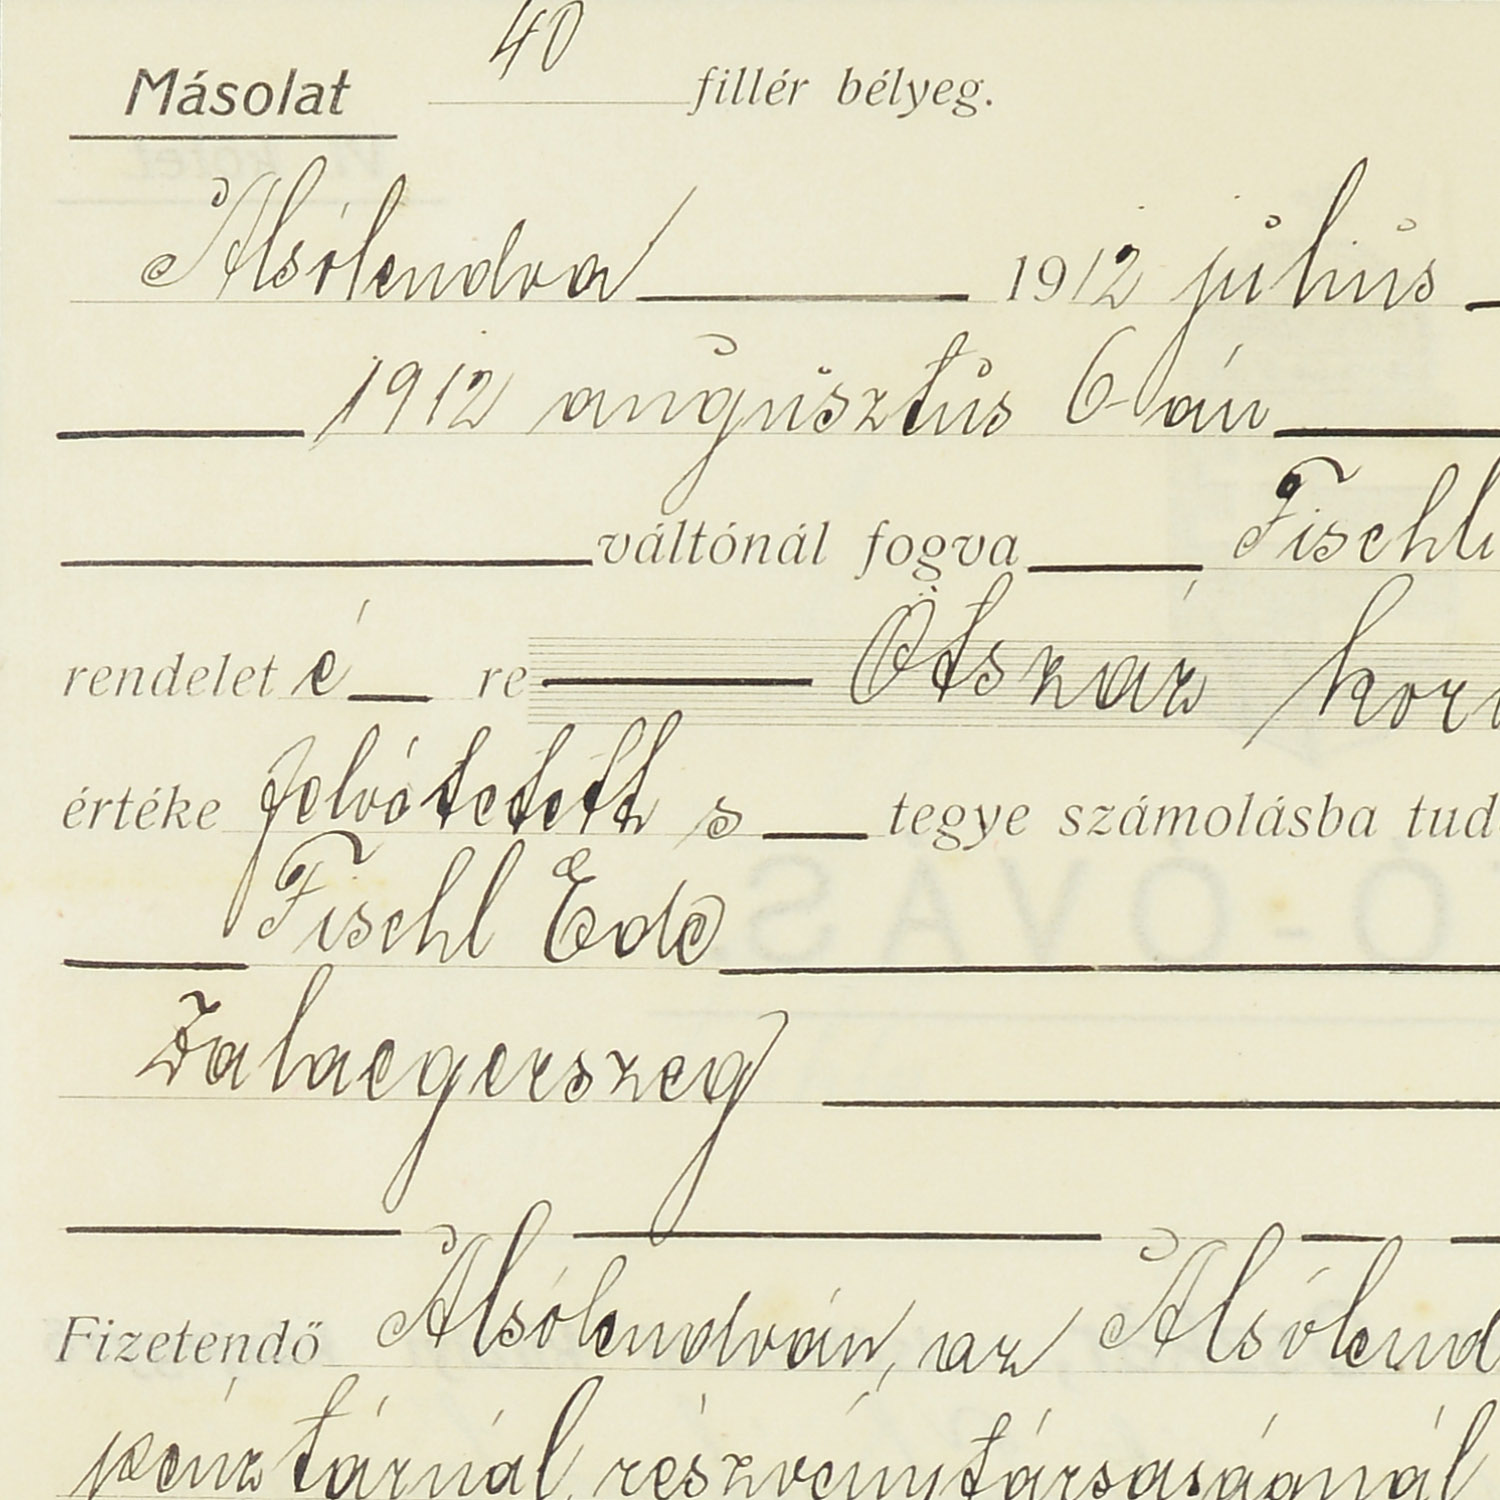 Másolat 40 fillér bélyeg.
Alsólendva 1912 július
1912 augusztus 6-án
váltónál fogva Fischl
rendelet é re Ötszáz kor
értéke felvétetett s tegye számolásba tud
Fischl Ede
Zalaegerszeg
Fizetendő Alsólendván, az Alsólend
pénztárnál, részvénytársaságnál